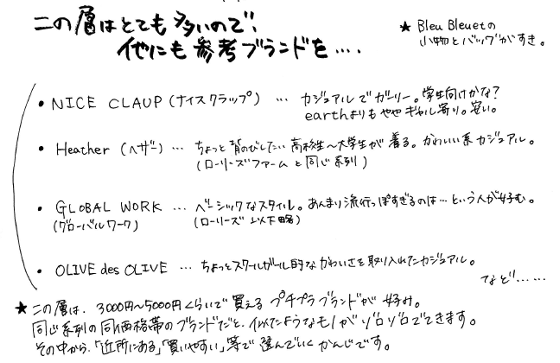 この層はとても多いので、
他にも参考ブランドを....
★ Bleu Bleuetの
小物とバッグがすき。
• NICE CLAUP (ナイスクラップ) … カジュアルでガーリー。学生向けかな?
earthよりもややギャル寄り。安い。
• Heather (ヘザー) … ちょっと背のびしたい高校生〜大学生が着る。かわいい系カジュアル。
(ローリーズファームと同じ系列)
• GLOBAL WORK … ベーシックなスタイル。あんまり流行っぽすぎるのは…という人が好む。
(グローバルワーク) (ローリーズ以下略)
• OLIVE des OLIVE … ちょっとスクールガール的なかわいさを取り入れたカジュアル。
など……
★ この層は、3000円〜5000円くらいで買えるプチプラブランドが好み。
同じ系列の同価格帯のブランドだと、似たようなものがゾロゾロでてきます。
その中から、「近所にある」「買いやすい」等で選んでいくかんじです。